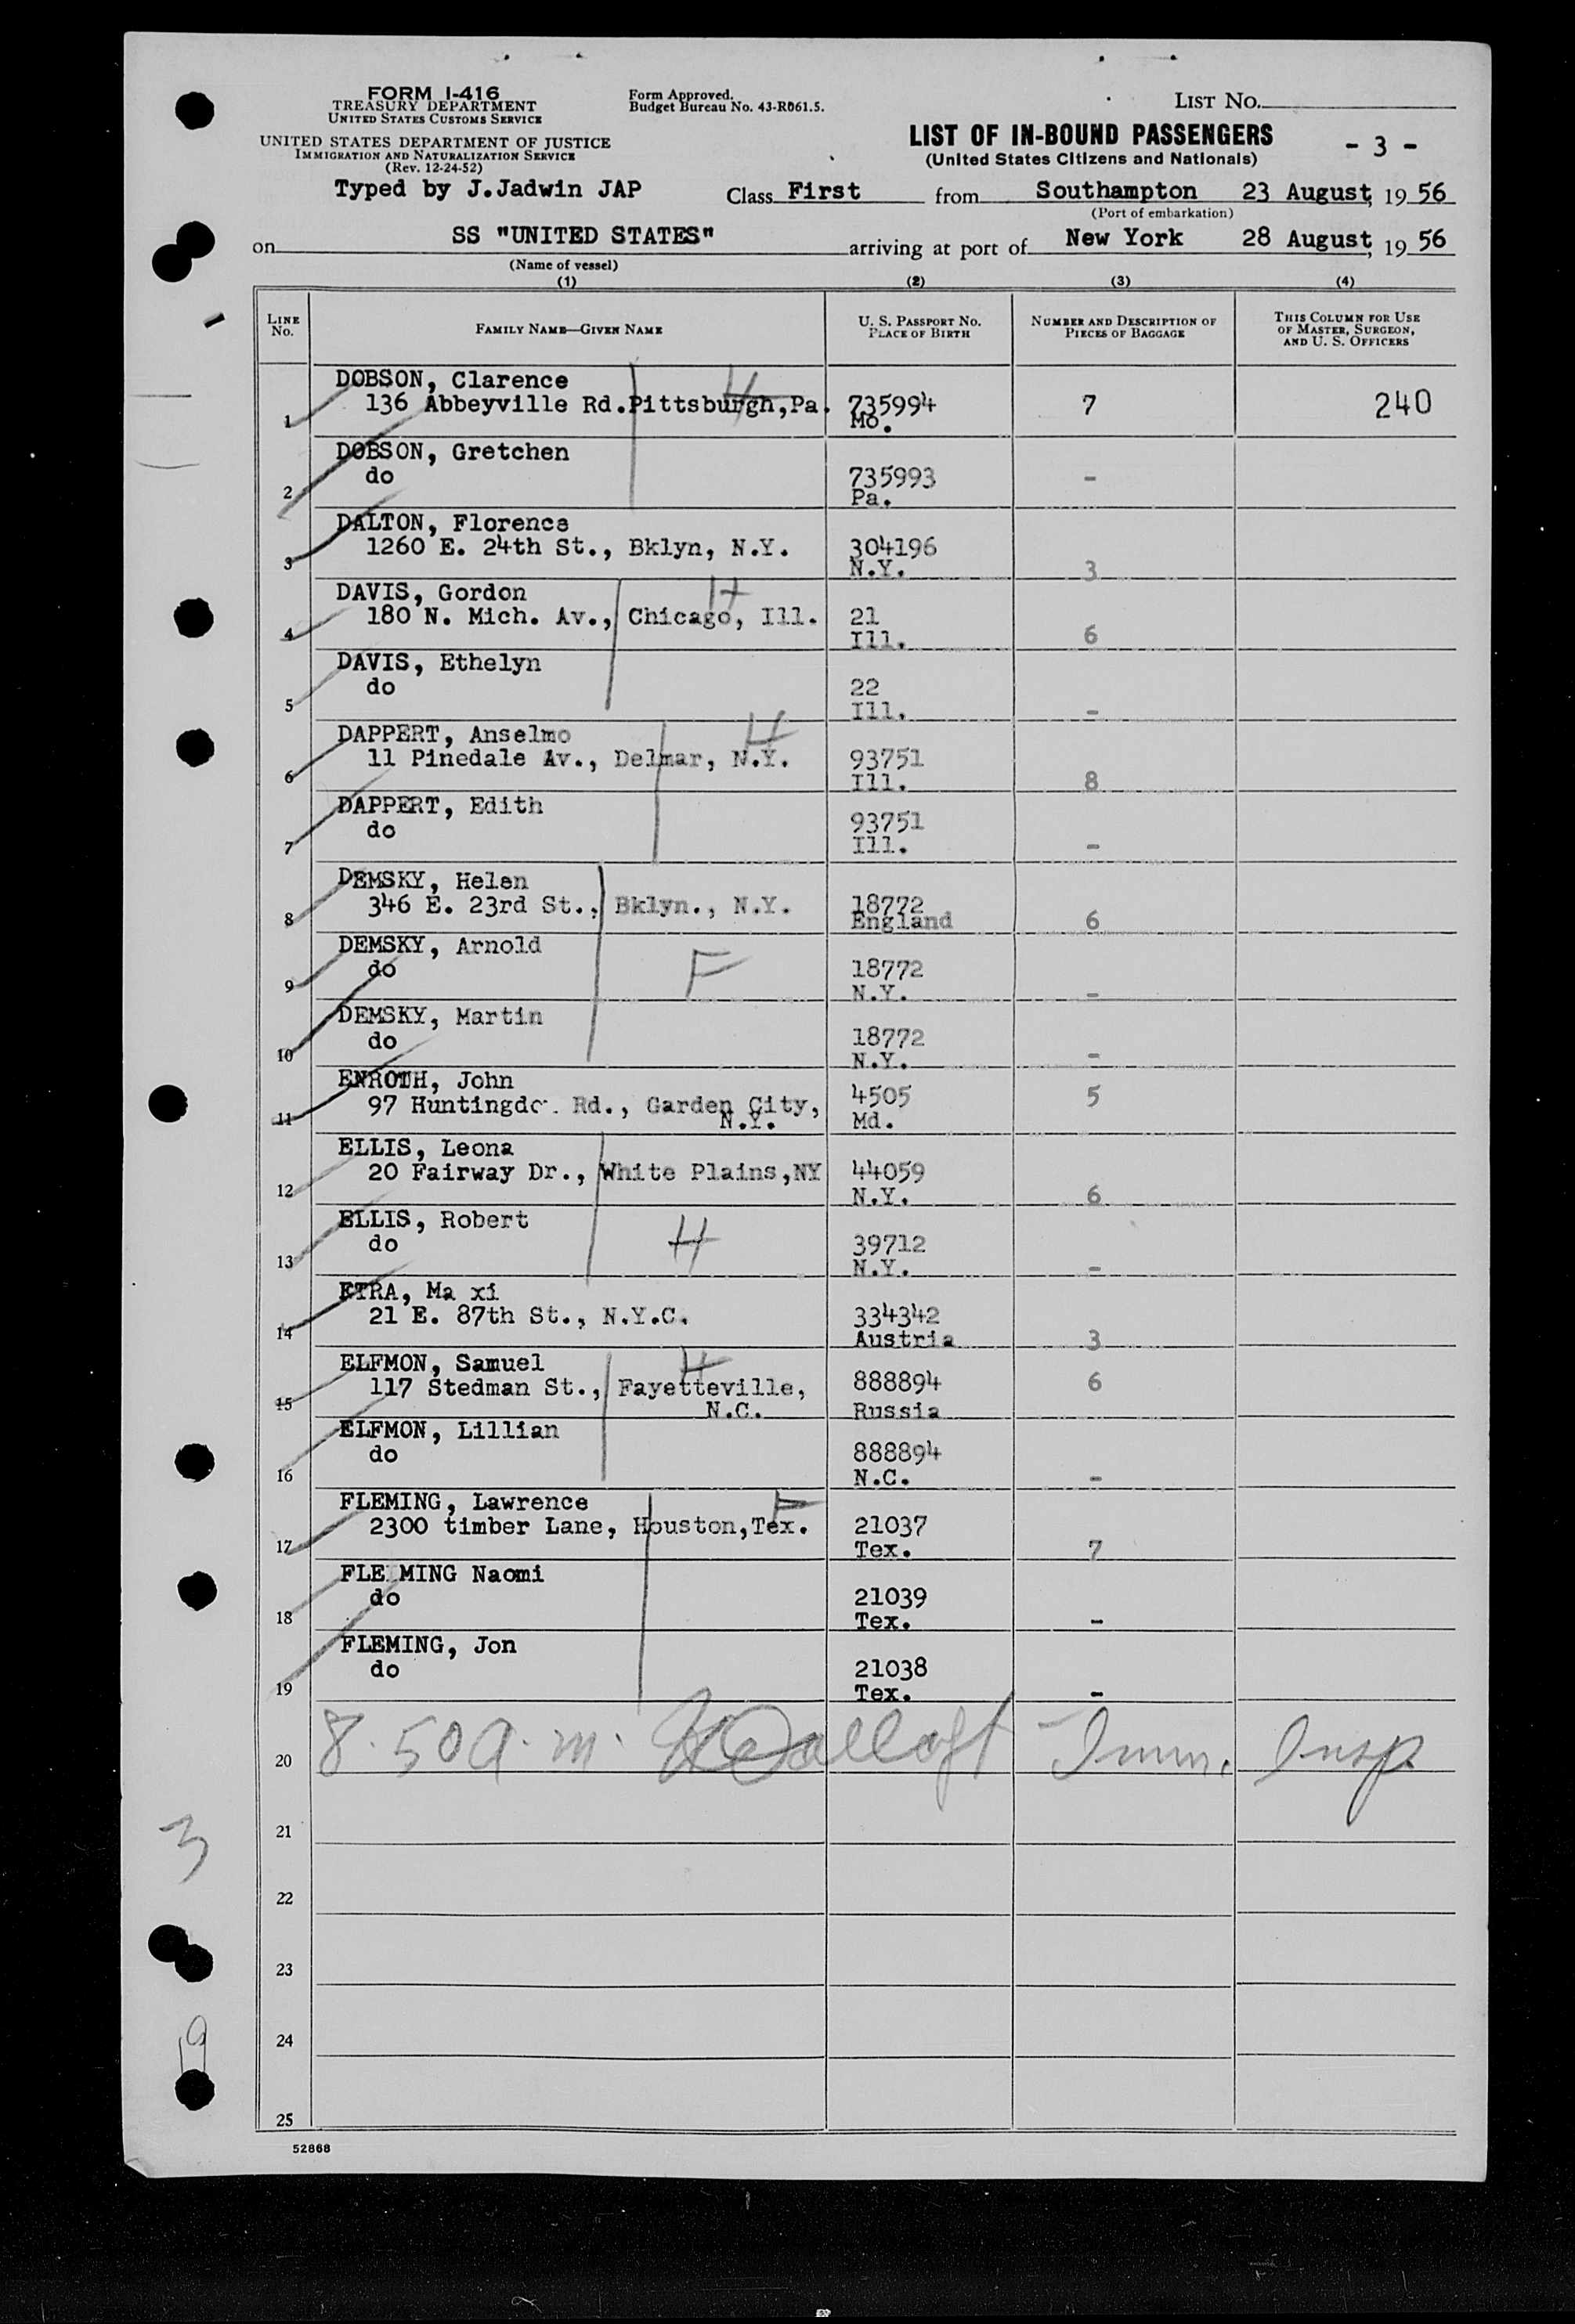 FORM I-416
TREASURY DEPARTMENT
UNITED STATES CUSTOMS SERVICE
UNITED STATES DEPARTMENT OF JUSTICE
IMMIGRATION AND NATURALIZATION SERVICE
(Rev. 12-24-52)
Typed by J.Jadwin JAP
Form Approved.
Budget Bureau No. 43-R061.5.
LIST NO.
LIST OF IN-BOUND PASSENGERS
(United States Citizens and Nationals)
- 3 -
Class First from Southampton 23 August, 19 56
(Port of embarkation)
on SS "UNITED STATES" arriving at port of New York 28 August, 19 56
(Name of vessel)
(1) (2) (3) (4)
LINE NO. FAMILY NAME—GIVEN NAME U. S. PASSPORT NO. PLACE OF BIRTH NUMBER AND DESCRIPTION OF PIECES OF BAGGAGE THIS COLUMN FOR USE OF MASTER, SURGEON, AND U. S. OFFICERS
DOBSON, Clarence H
1 136 Abbeyville Rd.Pittsburgh,Pa. 735994 7 240
Mo.
DOBSON, Gretchen
2 do 735993 -
Pa.
DALTON, Florence
3 1260 E. 24th St., Bklyn, N.Y. 304196
N.Y. 3
DAVIS, Gordon H
4 180 N. Mich. Av., Chicago, Ill. 21
Ill. 6
DAVIS, Ethelyn
5 do 22
Ill. -
DAPPERT, Anselmo H
6 11 Pinedale Av., Delmar, N.Y. 93751
Ill. 8
DAPPERT, Edith
7 do 93751
Ill. -
DEMSKY, Helen
8 346 E. 23rd St., Bklyn., N.Y. 18772
England 6
DEMSKY, Arnold
9 do F 18772
N.Y. -
DEMSKY, Martin
10 do 18772
N.Y. -
ENROTH, John
11 97 Huntingdo. Rd., Garden City, 4505 5
N.Y. Md.
ELLIS, Leona
12 20 Fairway Dr., White Plains,NY 44059
N.Y. 6
ELLIS, Robert
13 do H 39712
N.Y. -
ETRA, Ma xi
14 21 E. 87th St., N.Y.C. 334342
Austria 3
ELFMON, Samuel H
15 117 Stedman St., Fayetteville, 888894 6
N.C. Russia
ELFMON, Lillian
16 do 888894
N.C. -
FLEMING, Lawrence F
17 2300 timber Lane, Houston,Tex. 21037
Tex. 7
FLE MING Naomi
18 do 21039
Tex. -
FLEMING, Jon
19 do 21038
Tex. -
20 8.50 a.m. Imm. Insp
21
22
23
24
25
3
19
52868